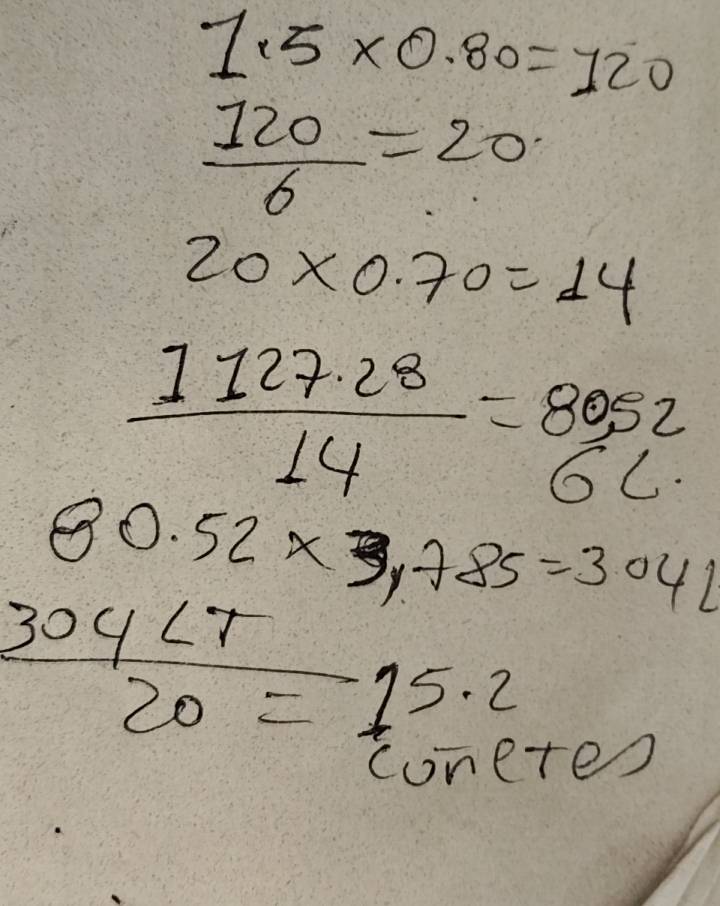 1.5 x 0.80 = 120
120 = 20
6
20 x 0.70 = 14
1127.28 = 80,52
14 GL.
80.52 x 3,785 = 304 L
304 LT
20 = 15.2
cuñetes